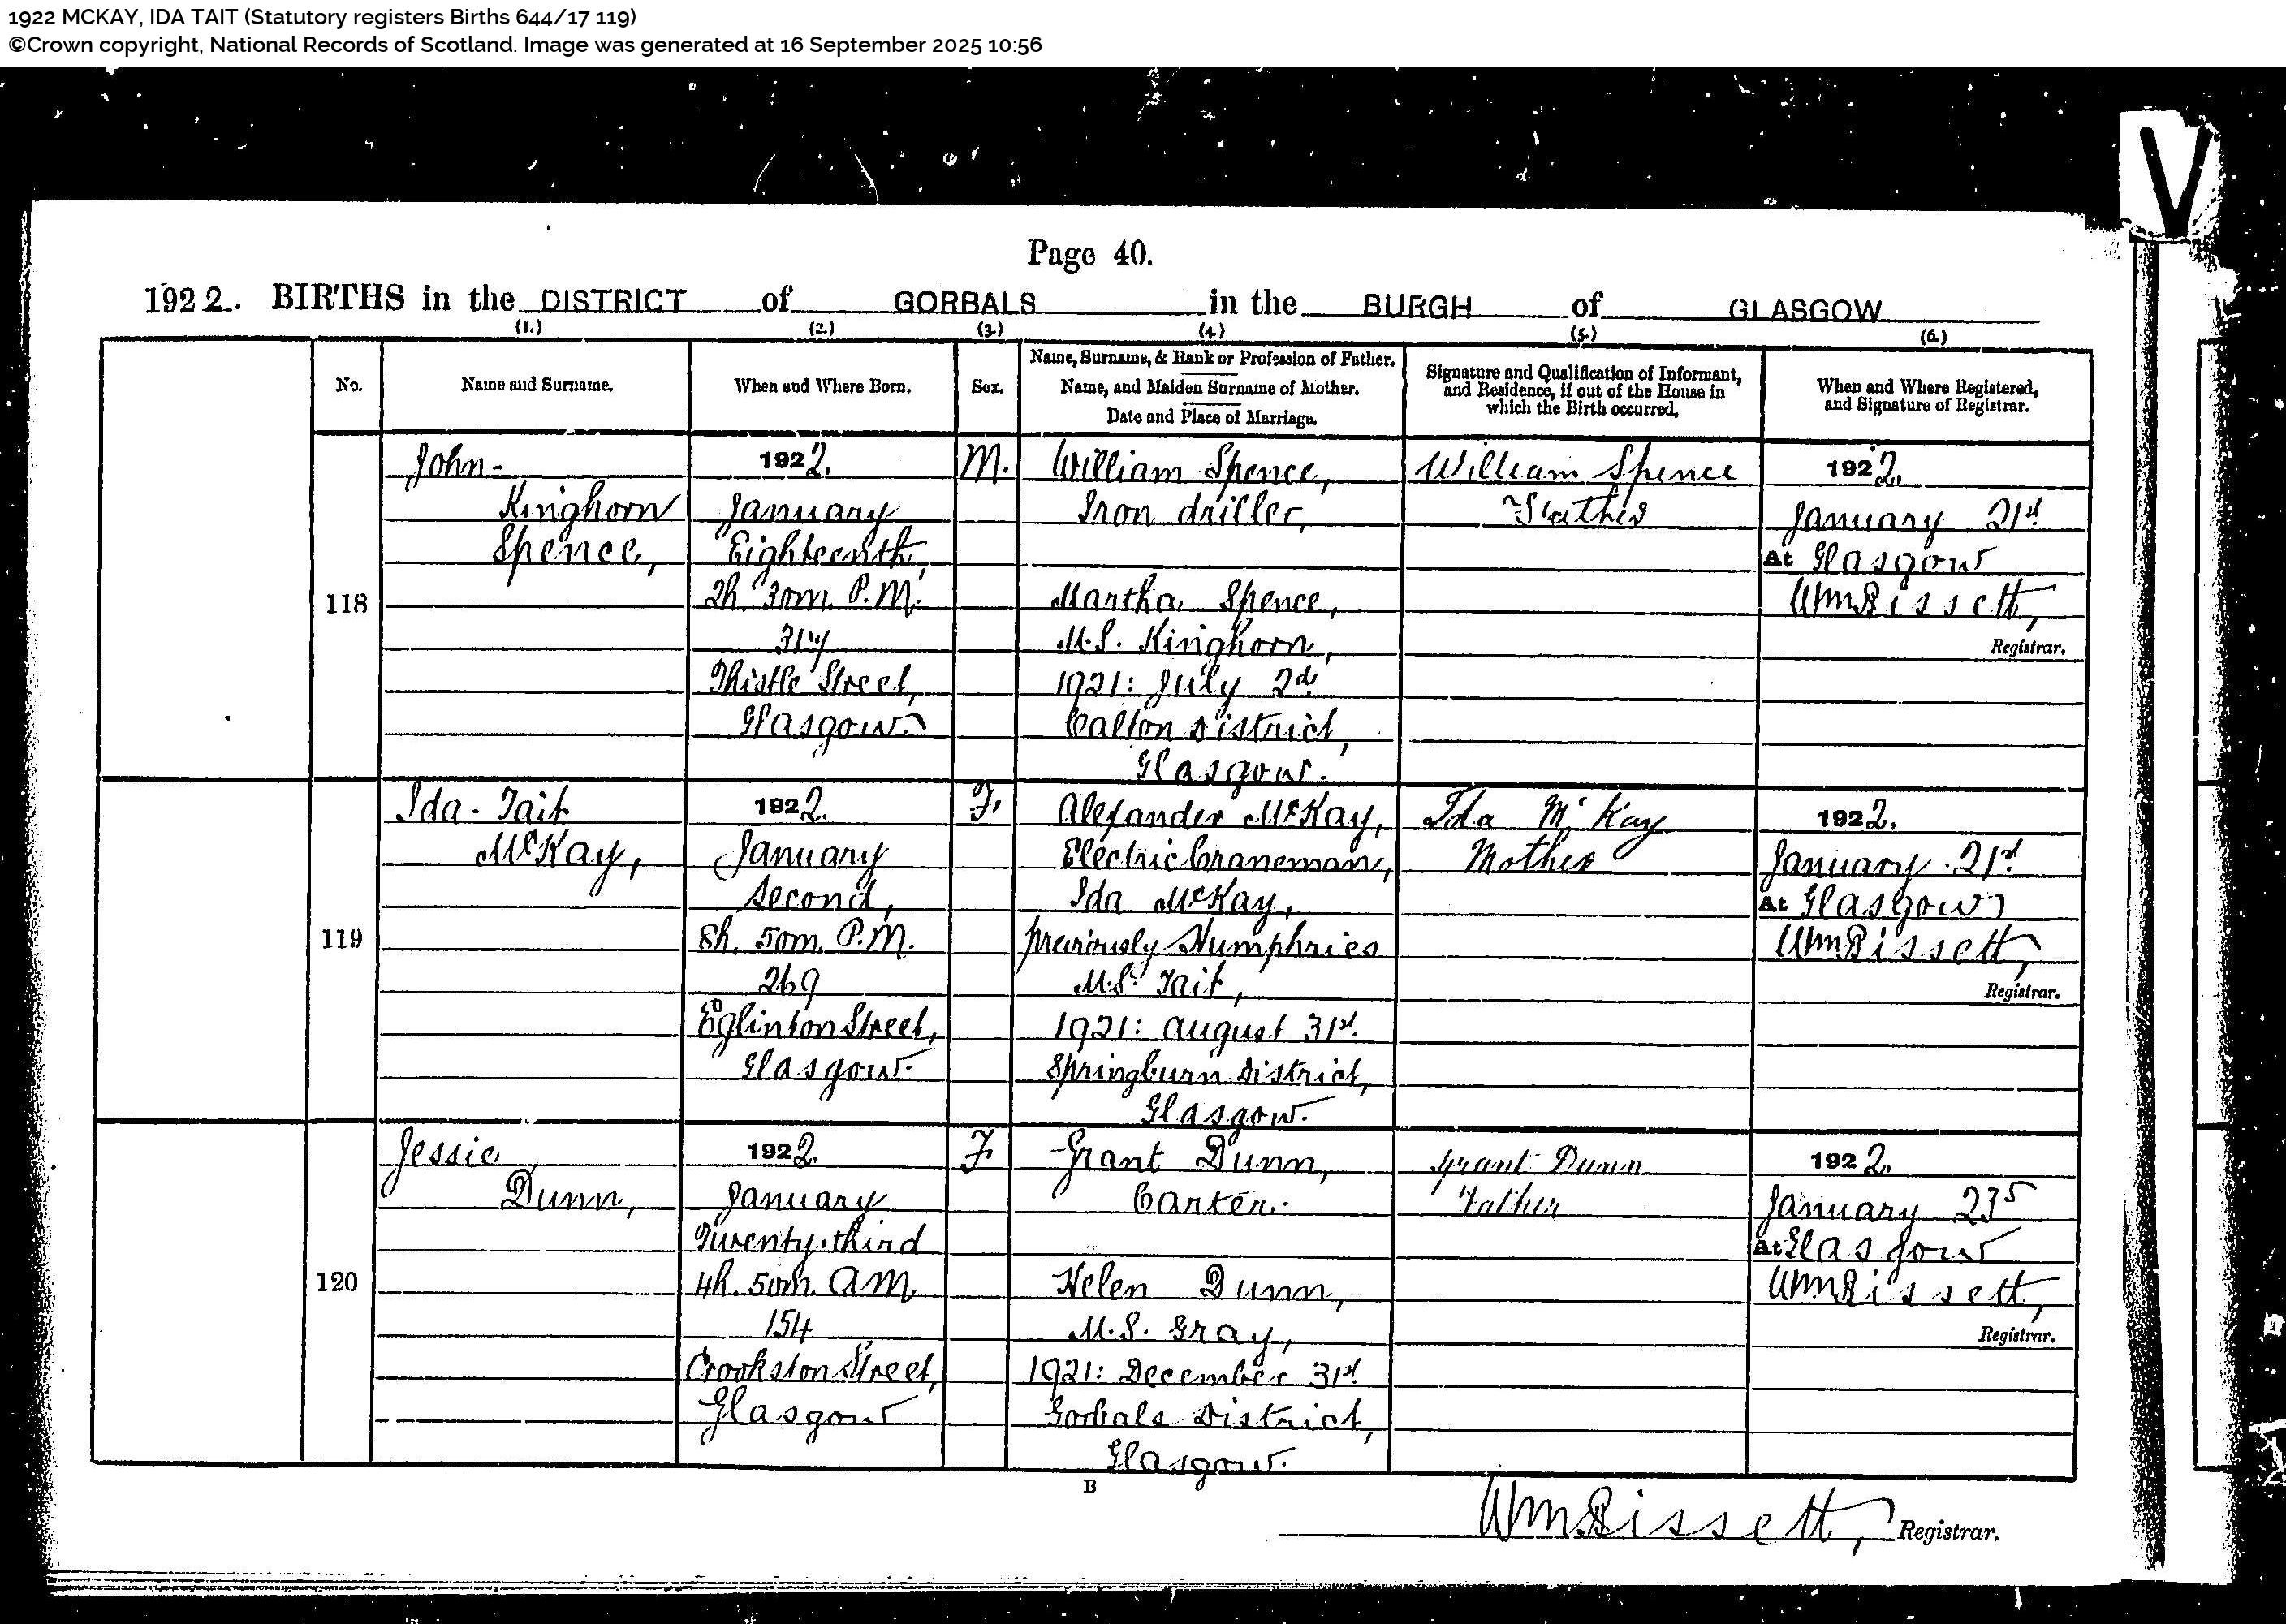 1922 MCKAY, IDA TAIT (Statutory registers Births 644/17 119)
©Crown copyright, National Records of Scotland. Image was generated at 16 September 2025 10:56
V
Page 40.
1922. BIRTHS in the DISTRICT of GORBALS in the BURGH of GLASGOW
(1.) (2.) (3.) (4.) (5.) (6.)
No.
Name and Surname.
When and Where Born.
Sex.
Name, Surname, & Rank or Profession of Father.
Name, and Maiden Surname of Mother.
Date and Place of Marriage.
Signature and Qualification of Informant,
and Residence, if out of the House in
which the Birth occurred.
When and Where Registered,
and Signature of Registrar.
118
John-
Kinghorn
Spence,
1922.
January
Eighteenth,
2h. 30m. P.M.
314
Thistle Street,
Glasgow.
M.
William Spence,
Iron driller,
Martha Spence,
M.S. Kinghorn,
1921: July 2d.
Calton District,
Glasgow.
William Spence
Father
1922.
January 21st
At Glasgow
Wm Bissett,
Registrar.
119
Ida-Tait
McKay,
1922.
January
Second,
8h. 50m. P.M.
269
Eglinton Street,
Glasgow.
F.
Alexander McKay,
Electric Craneman,
Ida McKay,
previously Humphries
M.S. Tait,
1921: August 31st.
Springburn District,
Glasgow.
Ida McKay
Mother
1922.
January 21st
At Glasgow
Wm Bissett,
Registrar.
120
Jessie
Dunn,
1922.
January
Twenty-third
4h. 50m. AM
154
Crookston Street,
Glasgow
F.
Grant Dunn,
Carter.
Helen Dunn,
M.S. Gray,
1921: December 31st.
Gorbals District,
Glasgow.
Grant Dunn
Father
1922.
January 23
At Glasgow
Wm Bissett,
Registrar.
B
Wm Bissett, Registrar.